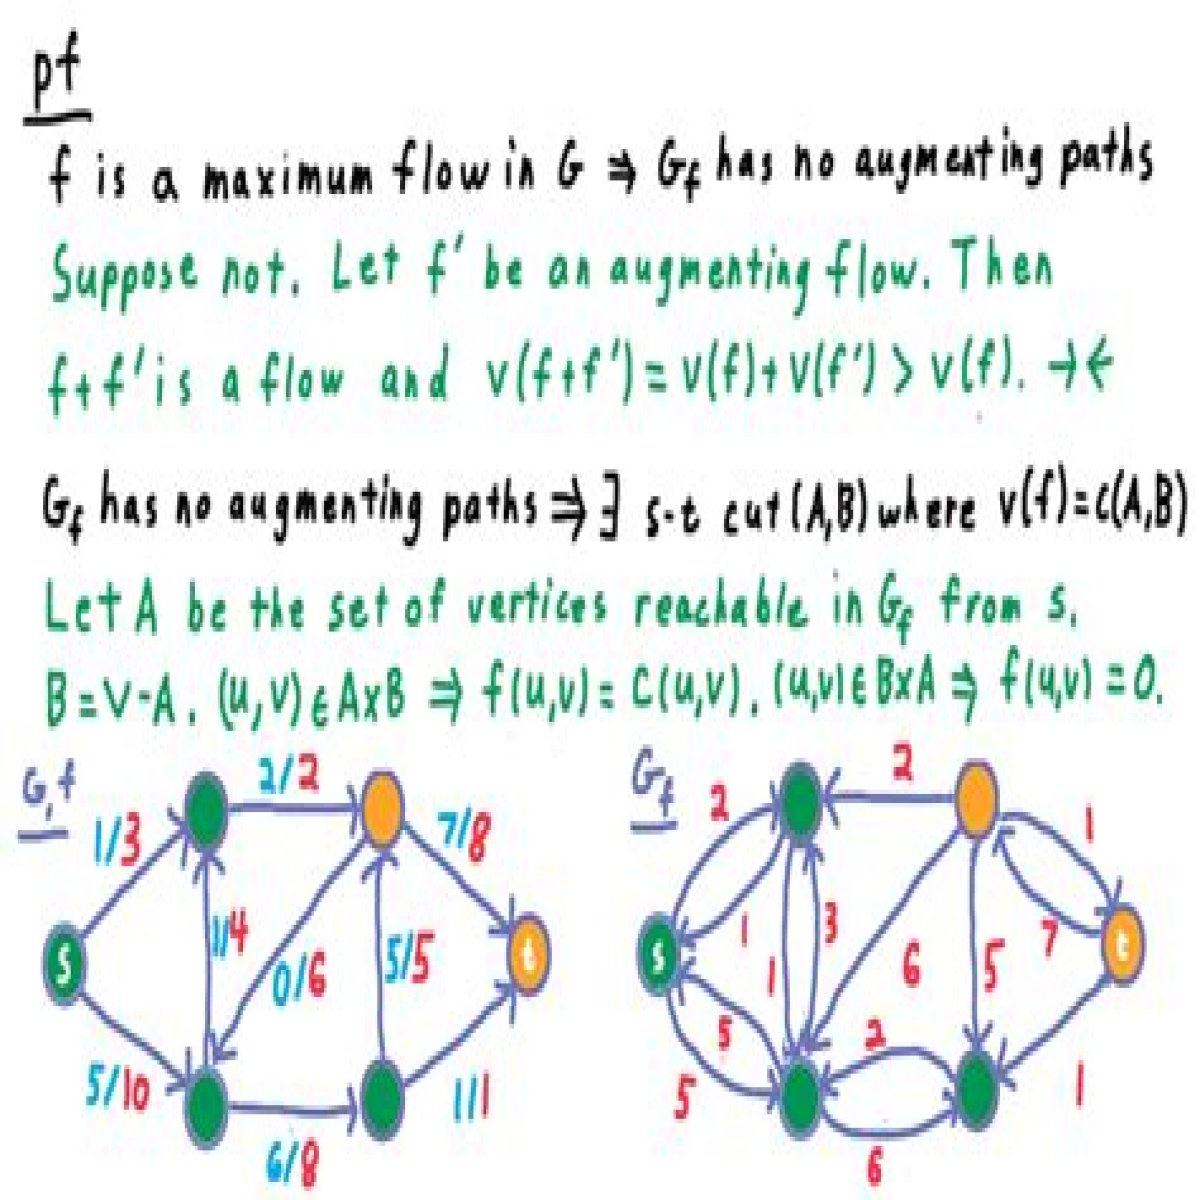 pf
f is a maximum flow in G ⇒ Gf has no augmenting paths
Suppose not. Let f' be an augmenting flow. Then
f+f' is a flow and v(f+f') = v(f)+v(f') > v(f). →←
Gf has no augmenting paths ⇒ ∃ s-t cut (A,B) where v(f)=c(A,B)
Let A be the set of vertices reachable in Gf from s.
B=V-A. (u,v)∈AxB ⇒ f(u,v)=c(u,v). (u,v)∈BxA ⇒ f(u,v)=0.
G,f
2/2
1/3
7/8
1/4
0/6
5/5
s
t
5/10
1/1
6/8
Gf
2
2
1
1
3
1
6
5
7
s
t
5
5
2
1
6